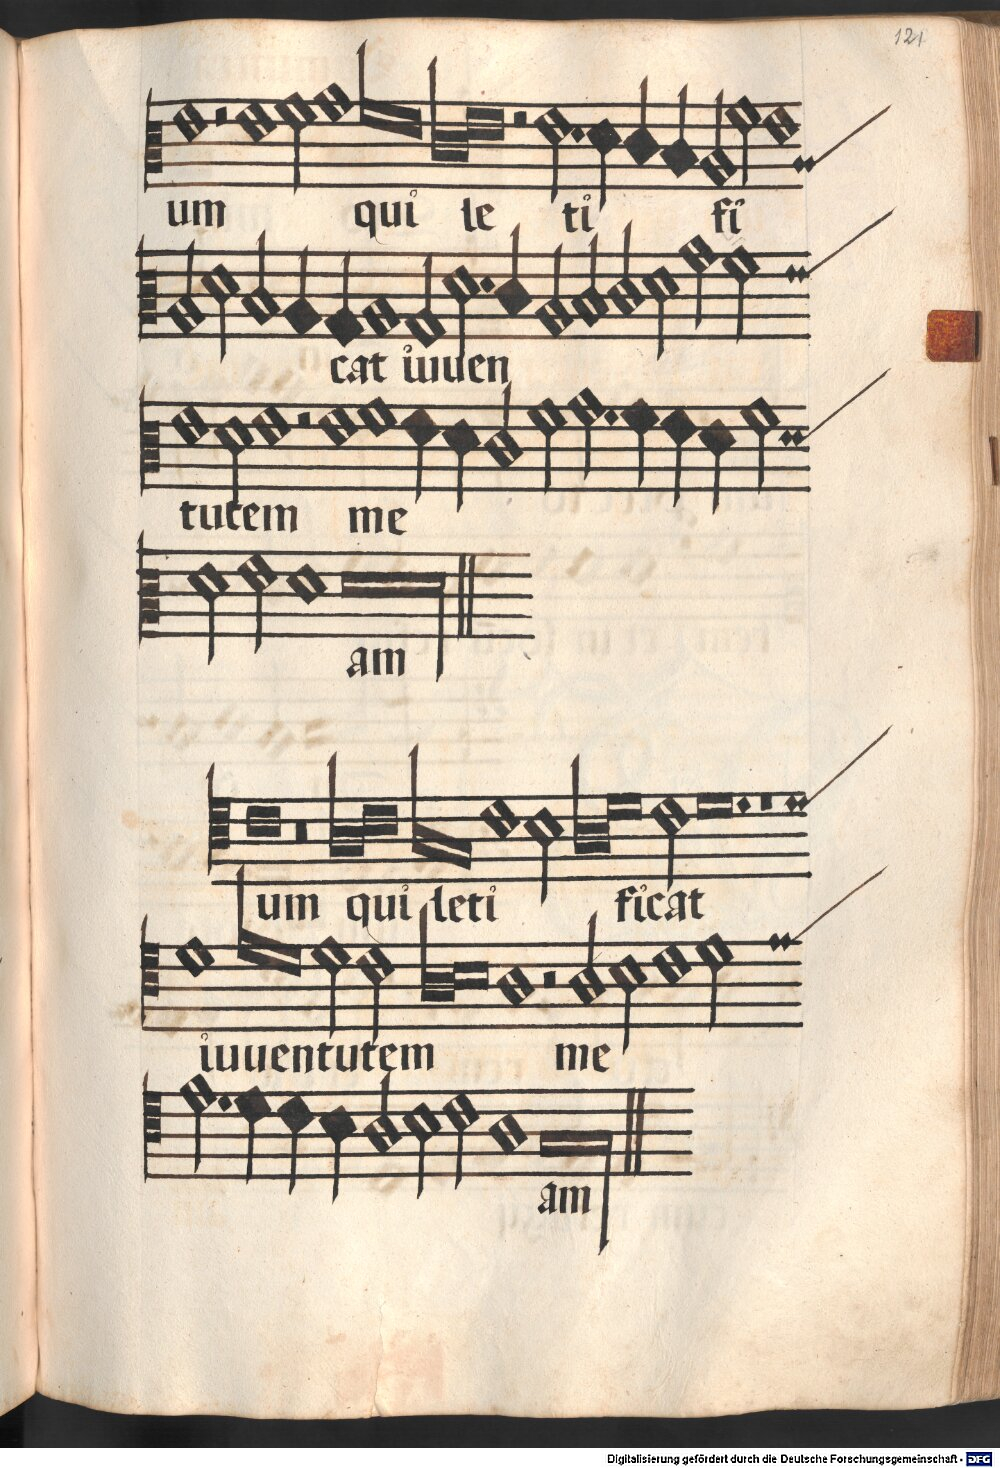 121
um qui le ti fi
cat iuuen
tutem me
am
um qui leti ficat
iuuentutem me
am
Digitalisierung gefördert durch die Deutsche Forschungsgemeinschaft - DFG